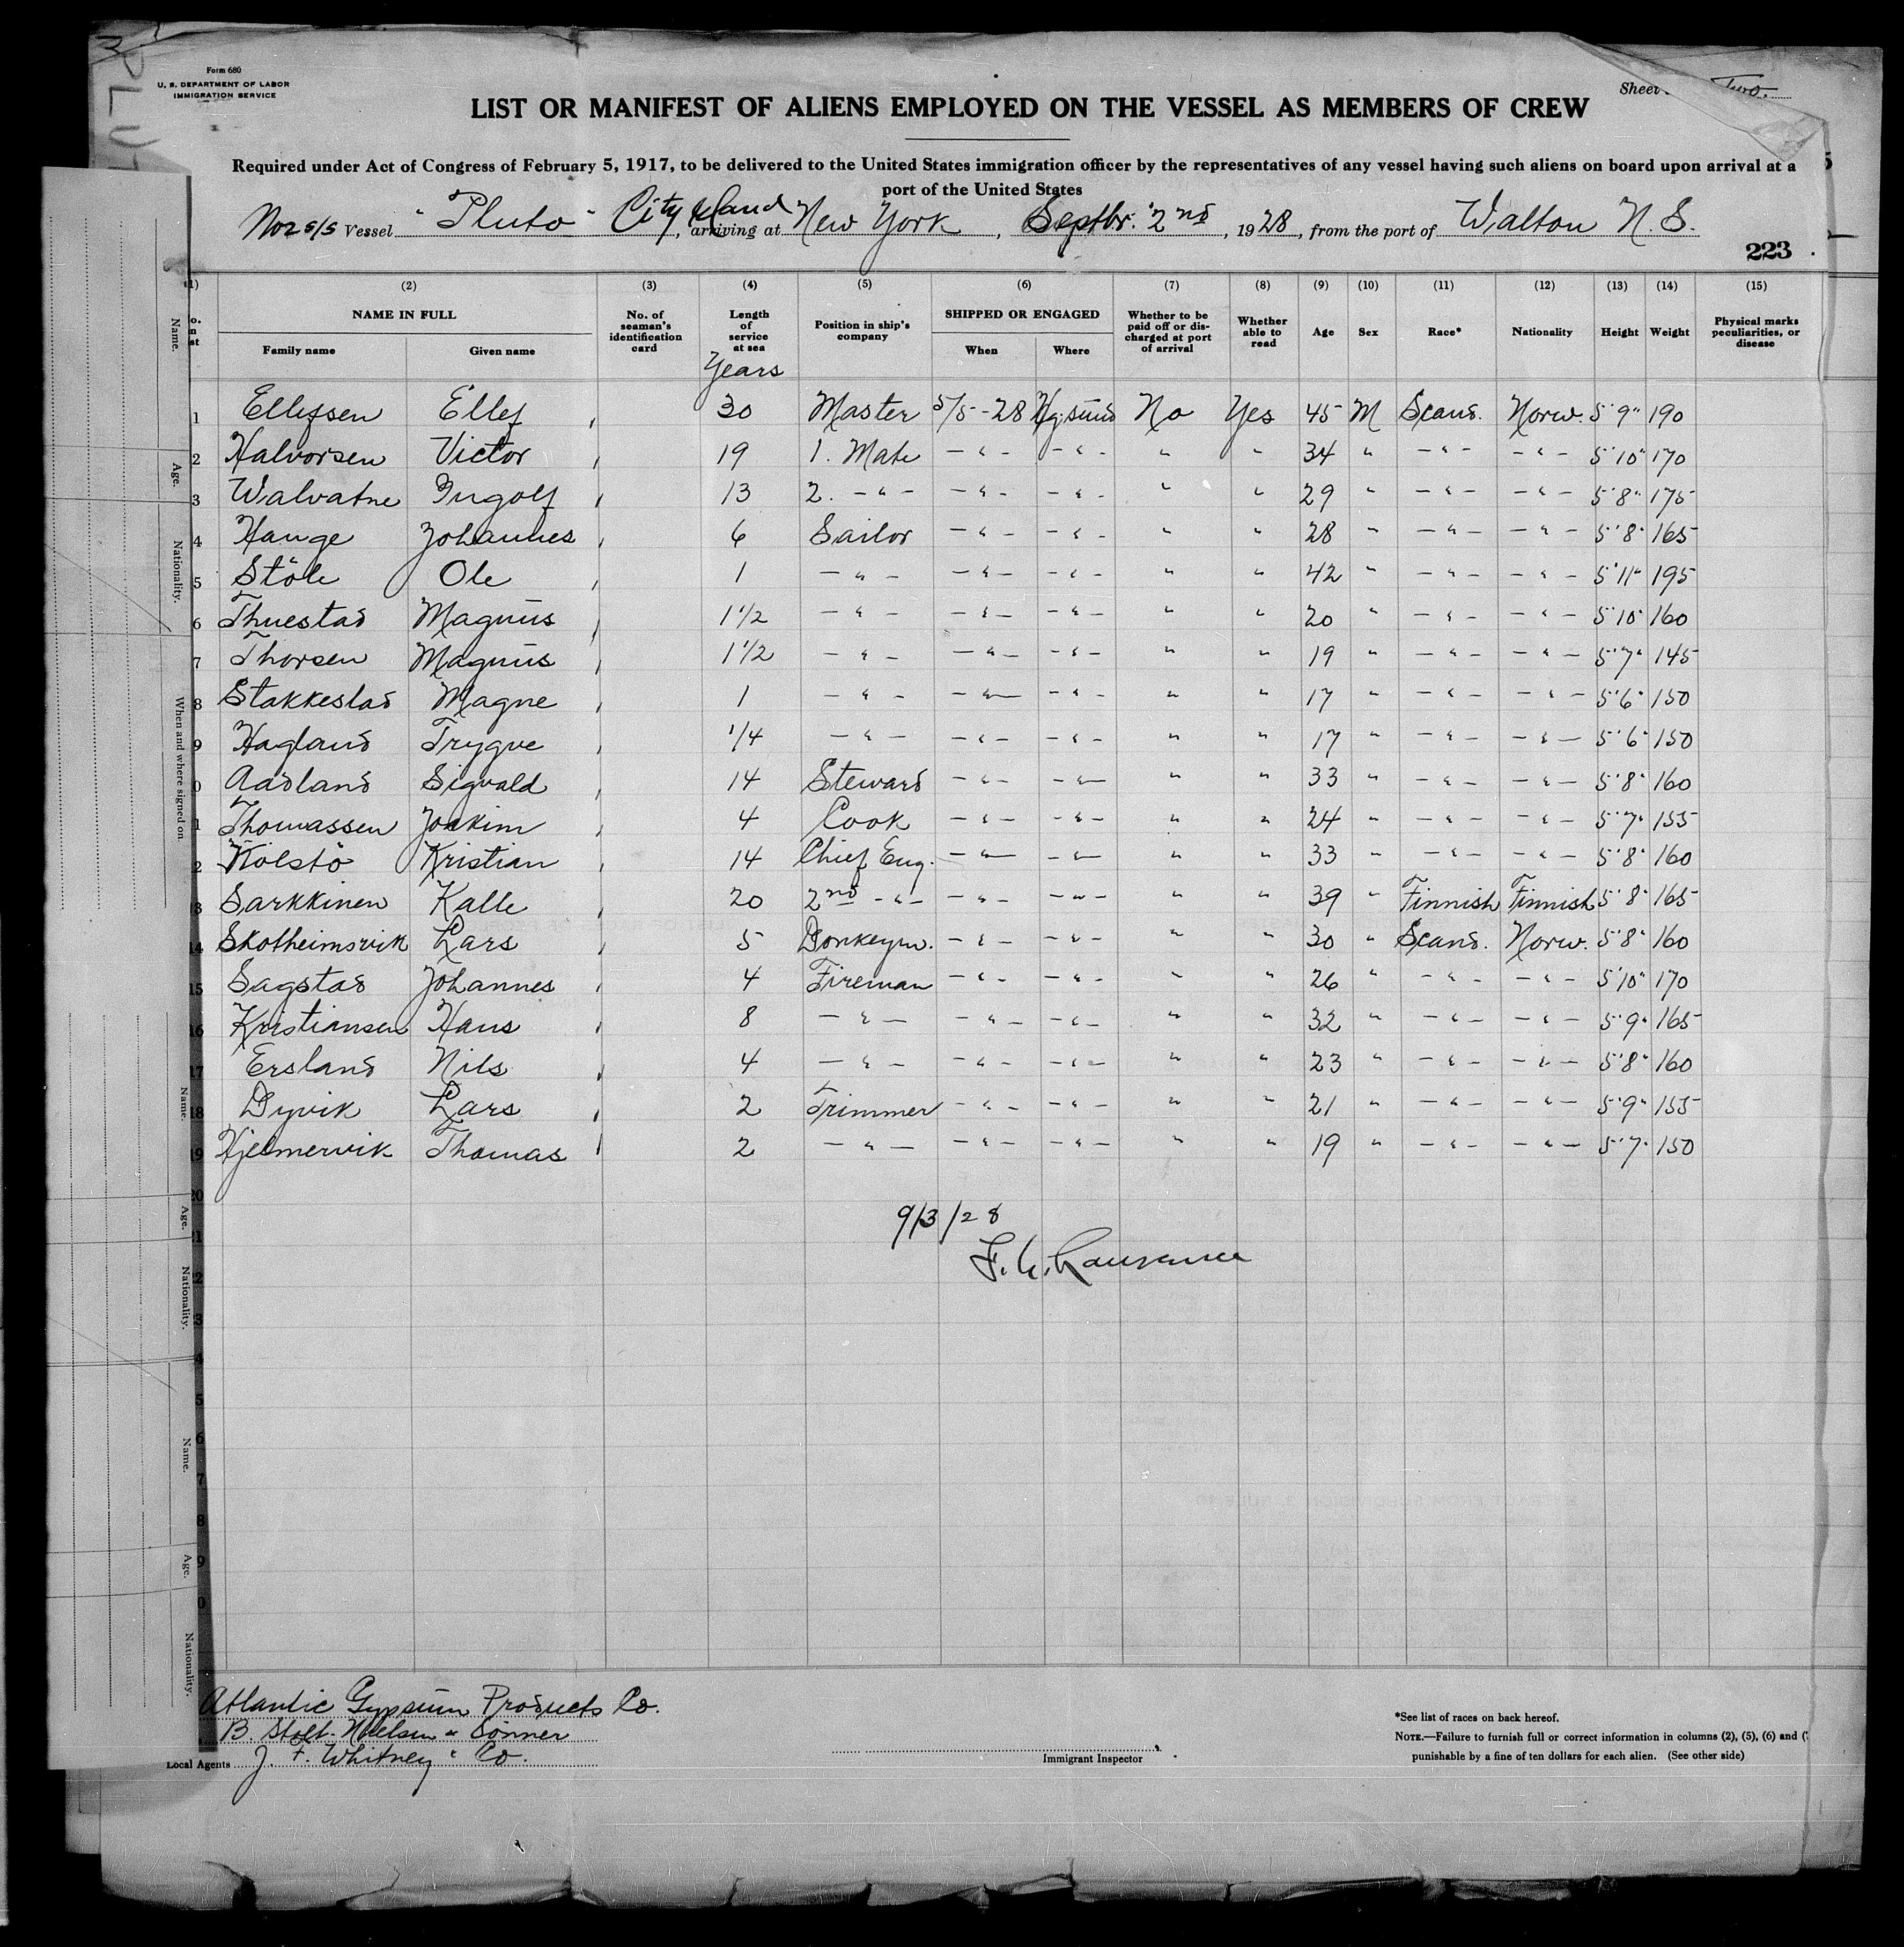 Form 680
U. S. DEPARTMENT OF LABOR
IMMIGRATION SERVICE
Sheet Two.
LIST OR MANIFEST OF ALIENS EMPLOYED ON THE VESSEL AS MEMBERS OF CREW
Required under Act of Congress of February 5, 1917, to be delivered to the United States immigration officer by the representatives of any vessel having such aliens on board upon arrival at a
port of the United States
s/s Vessel "Pluto" City Island, arriving at New York, Septbr. 2nd, 1928, from the port of Walton N. S.
223
(2) (3) (4) (5) (6) (7) (8) (9) (10) (11) (12) (13) (14) (15)
NAME IN FULL No. of seaman's identification card Length of service at sea Position in ship's company SHIPPED OR ENGAGED Whether to be paid off or discharged at port of arrival Whether able to read Age Sex Race* Nationality Height Weight Physical marks peculiarities, or disease
Family name Given name When Where
Years
1 Ellefsen Ellef 30 Master 5/5-28 Hgsund No Yes 45 M Scand. Norw. 5'9" 190
2 Halvorsen Victor 19 1. Mate -"- -"- " " 34 " -"- -"- 5'10" 170
3 Walvatne Ingolf 13 2. -"- -"- -"- " " 29 " -"- -"- 5'8" 175
4 Hauge Johannes 6 Sailor -"- -"- " " 28 " -"- -"- 5'8" 165
5 Stöle Ole 1 -"- -"- -"- " " 42 " -"- -"- 5'11" 195
6 Thuestad Magnus 1 1/2 -"- -"- -"- " " 20 " -"- -"- 5'10" 160
7 Thorsen Magnus 1 1/2 -"- -"- -"- " " 19 " -"- -"- 5'7" 145
8 Stakkestad Magne 1 -"- -"- -"- " " 17 " -"- -"- 5'6" 150
9 Hagland Trygve 1/4 -"- -"- -"- " " 17 " -"- -"- 5'6" 150
0 Aadland Sigvald 14 Steward -"- -"- " " 33 " -"- -"- 5'8" 160
1 Thomassen Joakim 4 Cook -"- -"- " " 24 " -"- -"- 5'7" 155
2 Kolstö Kristian 14 Chief Eng. -"- -"- " " 33 " -"- -"- 5'8" 160
3 Sarkkinen Kalle 20 2nd -"- -"- -"- " " 39 " Finnish Finnish 5'8" 165
14 Skotheimsvik Lars 5 Donkeym. -"- -"- " " 30 " Scand. Norw. 5'8" 160
15 Sagstad Johannes 4 Fireman -"- -"- " " 26 " -"- -"- 5'10" 170
16 Kristiansen Hans 8 -"- -"- -"- " " 32 " -"- -"- 5'9" 165
17 Ersland Nils 4 -"- -"- -"- " " 23 " -"- -"- 5'8" 160
18 Dyvik Lars 2 Trimmer -"- -"- " " 21 " -"- -"- 5'9" 155
19 Hjelmervik Thomas 2 -"- -"- -"- " " 19 " -"- -"- 5'7" 150
20
9/3/28
Name.
Age.
Nationality.
When and where signed on.
Name.
Age.
Nationality.
Name.
Age.
Nationality.
Atlantic Gypsum Products Co.
B. Stolt-Nielsen & Sönner
Local Agents J. F. Whitney & Co.
Immigrant Inspector
*See list of races on back hereof.
NOTE.—Failure to furnish full or correct information in columns (2), (5), (6) and (7
punishable by a fine of ten dollars for each alien. (See other side)